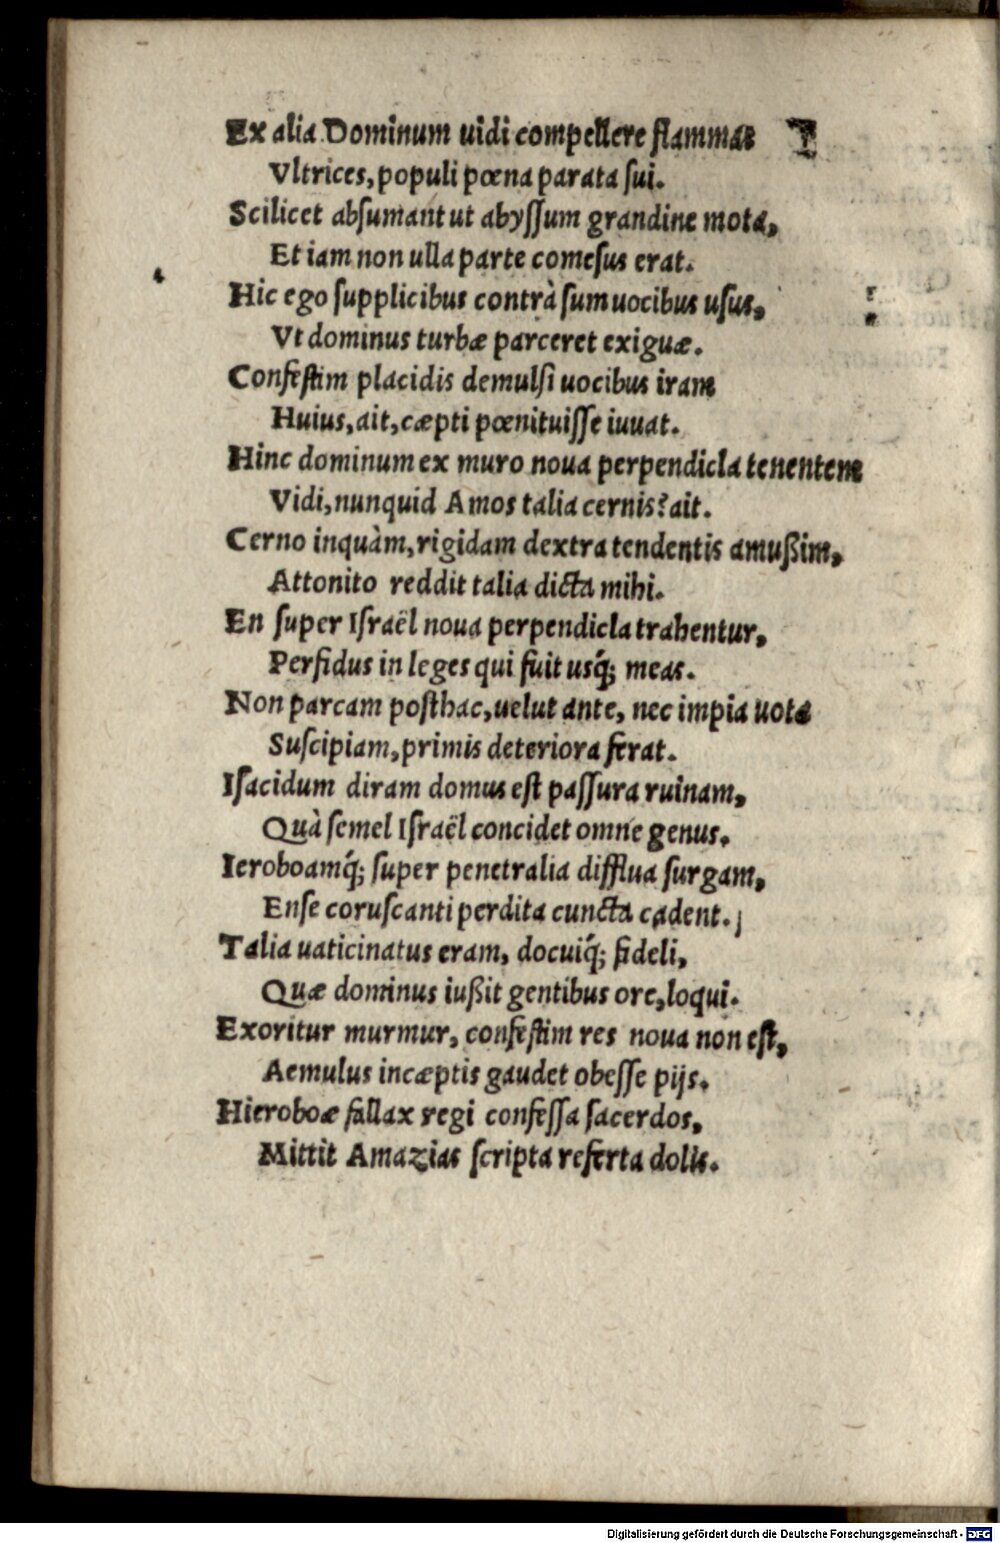 Ex alia Dominum uidi compellere flammas
Vltrices, populi pœna parata sui.
Scilicet absumant ut abyssum grandine mota,
Et iam non ulla parte comesus erat.
Hic ego supplicibus contrà sum uocibus usus,
Vt dominus turbæ parceret exiguæ.
Confestim placidis demulsi uocibus iram
Huius, ait, cæpti pœnituisse iuuat.
Hinc dominum ex muro noua perpendicla tenentem
Vidi, nunquid Amos talia cernis? ait.
Cerno inquàm, rigidam dextra tendentis amußim,
Attonito reddit talia dicta mihi.
En super Israël noua perpendicla trahentur,
Perfidus in leges qui fuit usq́; meas.
Non parcam posthac, uelut ante, nec impia uota
Suscipiam, primis deteriora ferat.
Isacidum diram domus est passura ruinam,
Quà semel Israël concidet omne genus.
Ieroboamq́; super penetralia difflua surgam,
Ense coruscanti perdita cuncta cadent.
Talia uaticinatus eram, docuiq́; fideli,
Quæ dominus iußit gentibus ore, loqui.
Exoritur murmur, confestim res noua non est,
Aemulus incæptis gaudet obesse pijs.
Hieroboæ fallax regi confessa sacerdos,
Mittit Amazias scripta referta dolis.
Digitalisierung gefördert durch die Deutsche Forschungsgemeinschaft - DFG